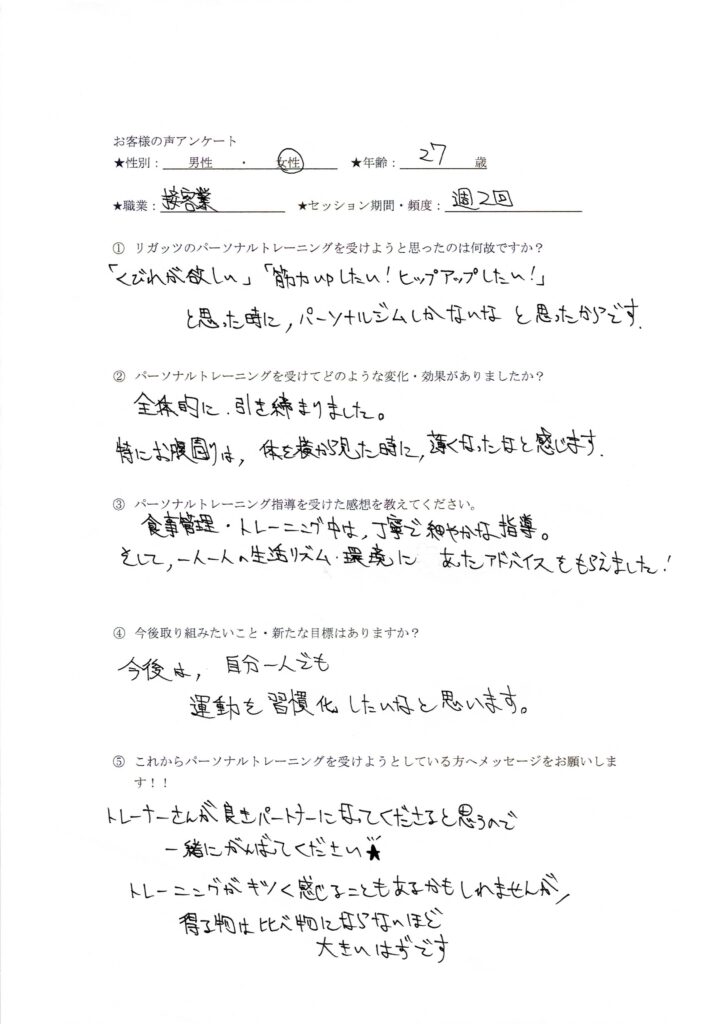 お客様の声アンケート
★性別： 男性 ・ 女性 ★年齢： 27 歳
★職業：接客業 ★セッション期間・頻度： 週2回
① リガッツのパーソナルトレーニングを受けようと思ったのは何故ですか？
「くびれが欲しい」「筋力upしたい！ヒップアップしたい！」
と思った時に，パーソナルジムしかないな と思ったからです．
② パーソナルトレーニングを受けてどのような変化・効果がありましたか？
全体的に．引き締まりました。
特にお腹周りは，体を横から見た時に，薄くなったなと感じます．
③ パーソナルトレーニング指導を受けた感想を教えてください。
食事管理・トレーニング中は，丁寧で細やかな指導。
そして，一人一人の生活リズム・環境に あったアドバイスをもらえました！
④ 今後取り組みたいこと・新たな目標はありますか？
今後は， 自分一人でも
運動を習慣化したいなと思います。
⑤ これからパーソナルトレーニングを受けようとしている方へメッセージをお願いしま
す！！
トレーナーさんが良きパートナーになってくださると思うので
一緒にがんばってください★
トレーニングがキツく感じることもあるかもしれませんが，
得る物は比べ物にならないほど
大きいはずです